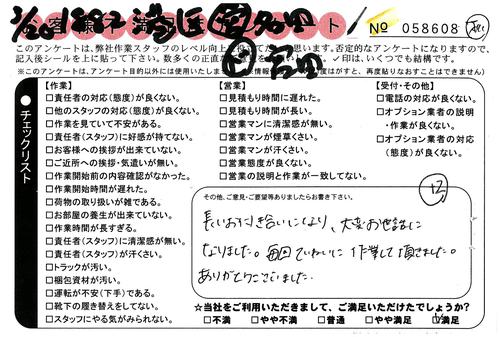 Nº 058608
このアンケートは、弊社作業スタッフのレベル向上を
思います。否定的なアンケートになりますので、
記入後シールを上に貼って下さい。数多くの正直な
✓印は、いくつでも結構です。
※このアンケートは、アンケート目的以外には使用いたしま
はがすと、再度貼りなおすことはできません)
チェックリスト
【作業】
□責任者の対応(態度)が良くない。
□他のスタッフの対応(態度)が良くない。
□作業を見ていて不安がある。
□責任者(スタッフ)に好感が持てない。
□お客様への挨拶が出来ていない。
□ご近所への挨拶・気遣いが無い。
□作業開始前の内容確認がなかった。
□作業開始時間が遅れた。
□荷物の取り扱いが雑である。
□お部屋の養生が出来ていない。
□作業時間が長すぎる。
□責任者(スタッフ)に清潔感が無い。
□責任者(スタッフ)が汗くさい。
□トラックが汚い。
□梱包資材が汚い。
□運転が不安(下手)である。
□靴下の履き替えをしてない。
□スタッフにやる気がみられない。
【営業】
□見積もり時間に遅れた。
□見積もり時間が長い。
□営業マンに清潔感が無い。
□営業マンが煙草くさい。
□営業マンが汗くさい。
□営業態度が良くない。
□営業の説明と作業が一致してない。
【受付・その他】
□電話の対応が良くない。
□オプション業者の説明
・作業が良くない。
□オプション業者の対応
(態度)が良くない。
その他、ご意見・ご要望等ありましたらお書き下さい。
12
長いお付き合いになり、大変お世話に
なりました。毎回ていねいに作業して頂きました。
ありがとうございました。
☆当社をご利用いただきまして、ご満足いただけたでしょうか?
□不満 □やや不満 □普通 □やや満足 ☑満足